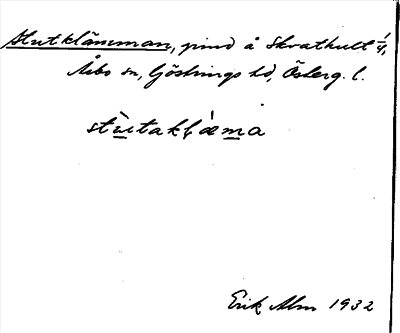 Stutklämman, grind å Skrathult 1/4,
Åsbo sn, Göstrings hd, Österg. l.
stùtaklǻma
Erik Alm 1932